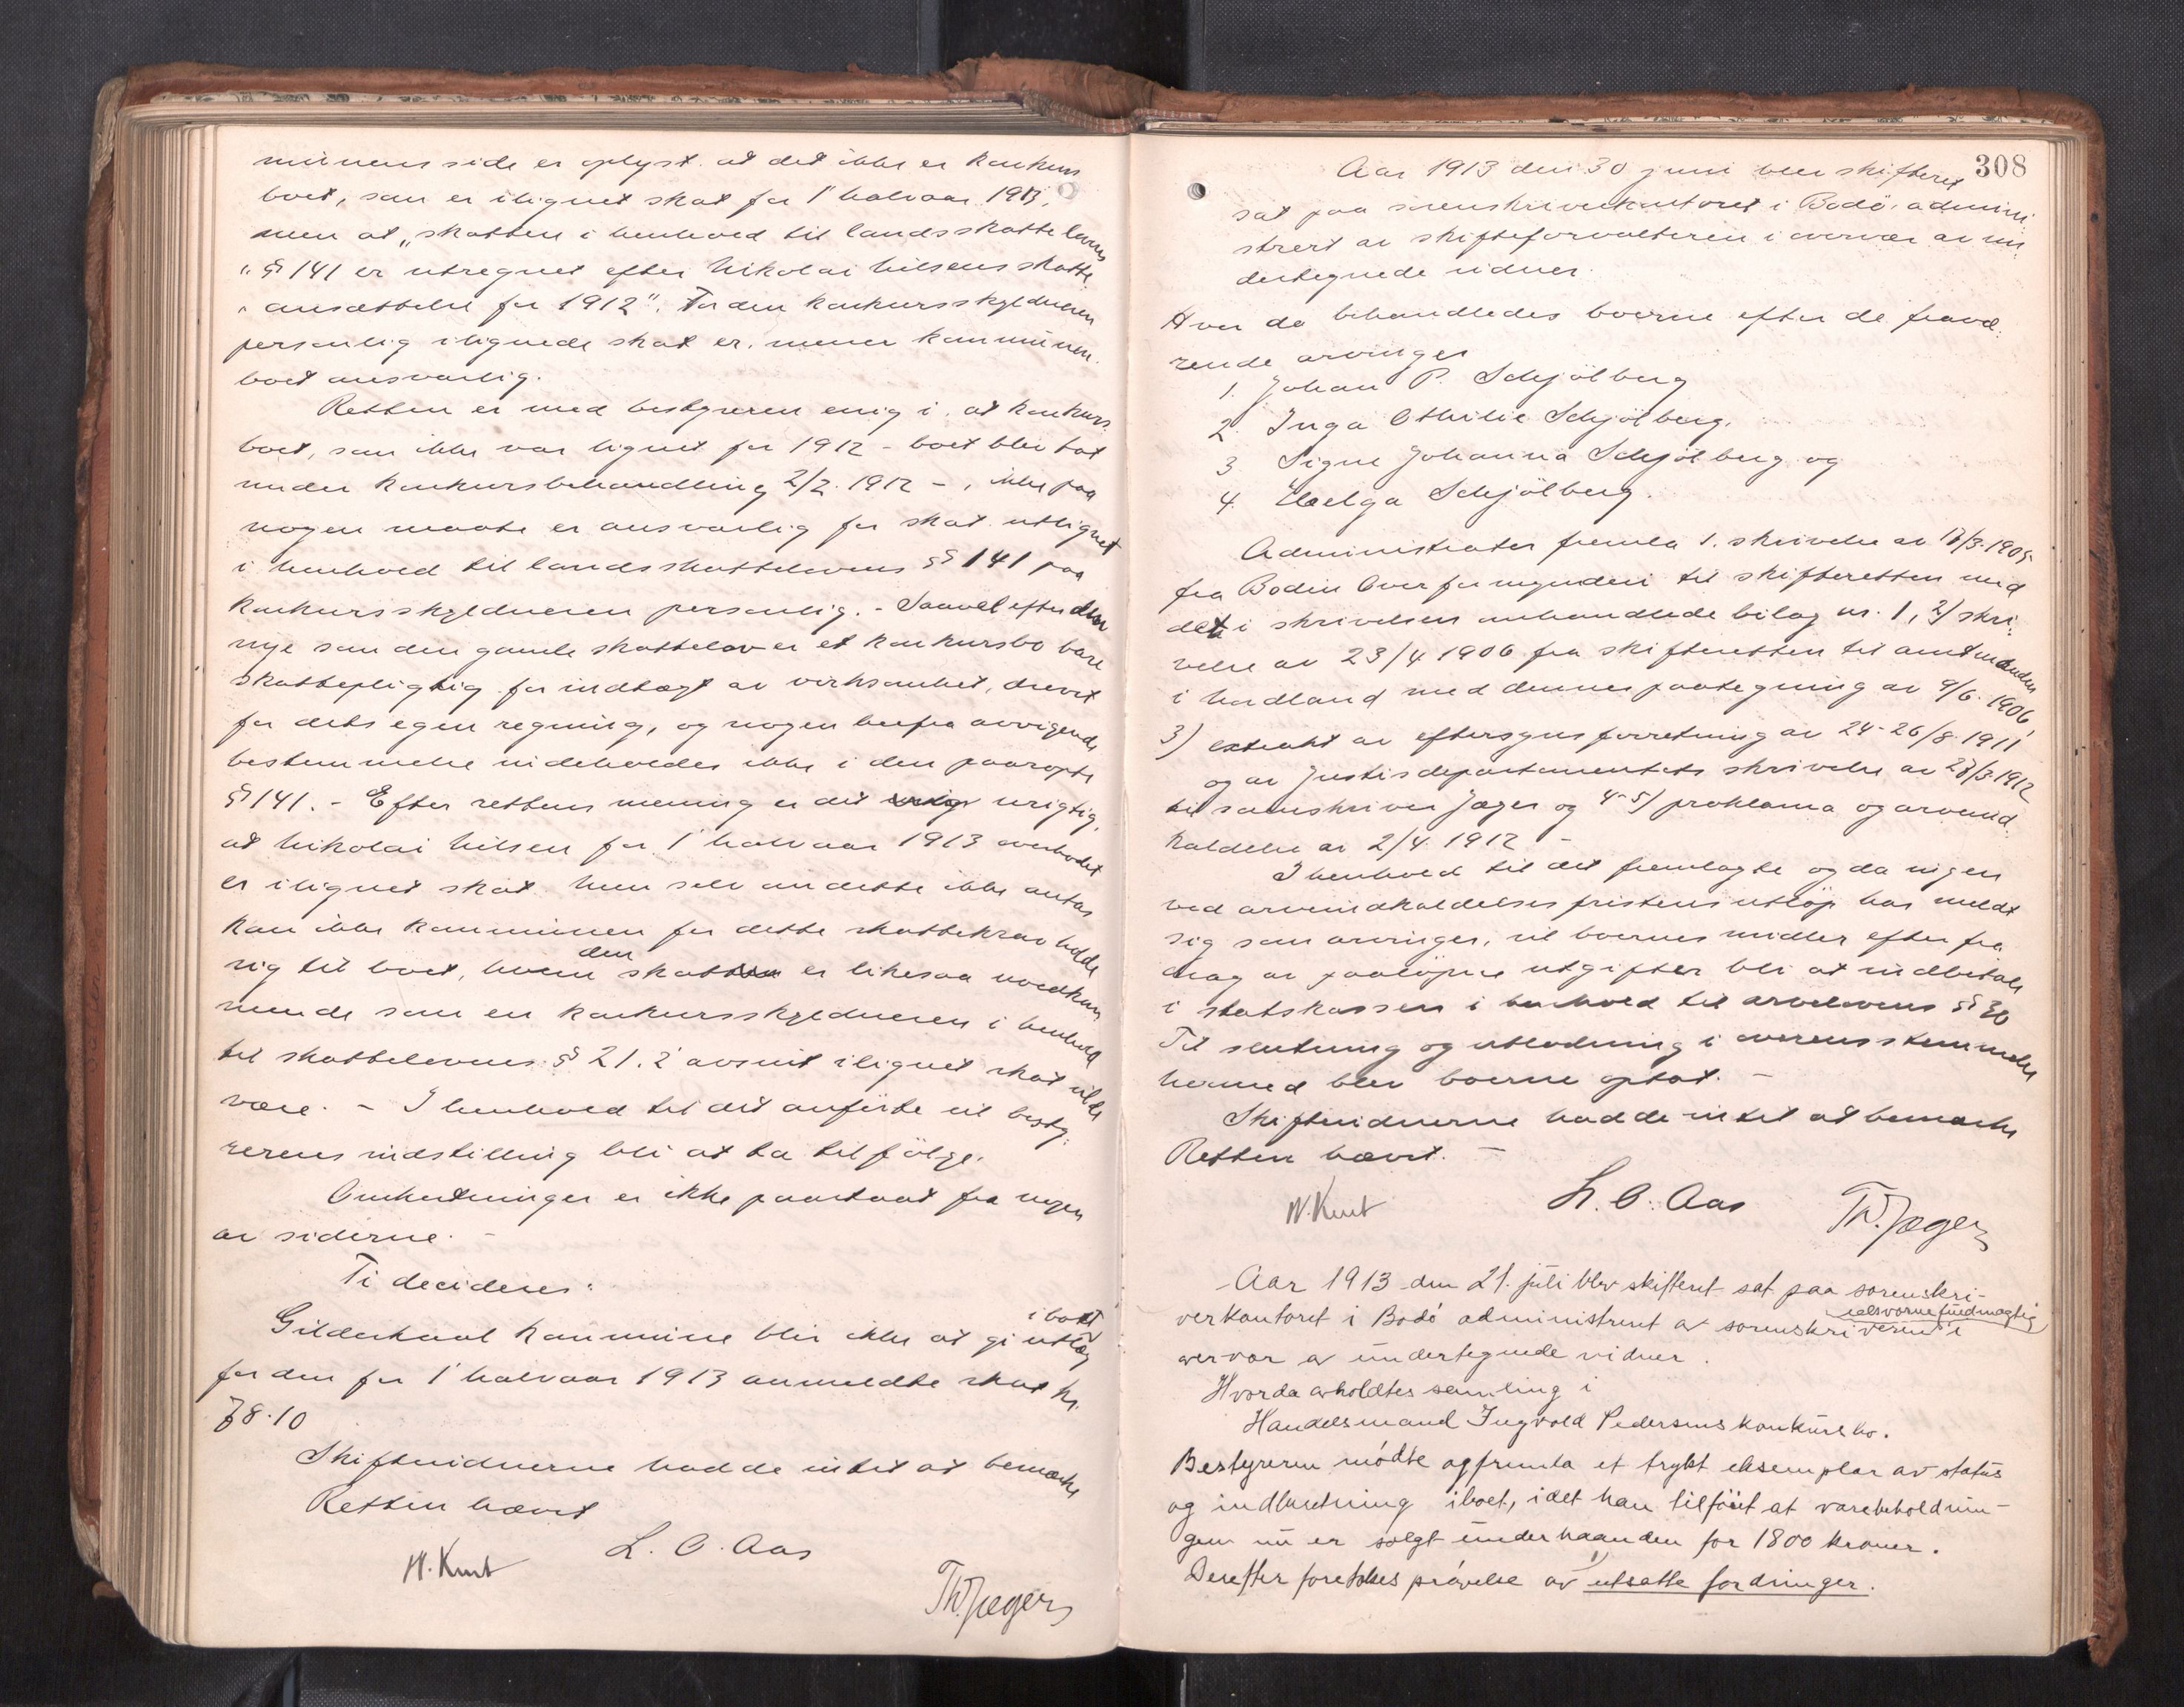 munens side er oplyst at det ikke er konkurs
boet, som er ilignet skat for 1' halvaar 1913,
men at „skatten i henhold til landsskattelovens
„§ 141 er utregnet efter Nikolai Nilsens skatte
„ansættelse for 1912". For den konkursskyldneren
personlig ilignede skat er, mener kommunen
boet ansvarlig.
Retten er med bestyreren enig i, at konkurs
boet, som ikke var lignet for 1912 - boet blev tat
under konkursbehandling 2/2 1912 -, ikke paa
nogen maate er ansvarlig for skat utlignet
i henhold til landsskattelovens § 141 paa
konkursskyldneren personlig. - Saavel efter den
nye som den gamle skattelov er et konkursbo bare
skattepligtig for indtægt av virksomhet, drevet
for dets egen regning, og nogen herfra avvigende
bestemmelse indeholdes ikke i den paaropte
§ 141. - Efter rettens mening er det urigtig,
at Nikolai Nilsen for 1' halvaar 1913 overhodet
er ilignet skat. Men selv om dette ikke antas
kan ikke kommunen for dette skattekrav holde
den
sig til boet, hvem skatten er likesaa uvedkom
mende som en konkursskyldneren i henhold
til skattelovens § 21. 2' avsnit ilignet skat vilde
være. - I henhold til det anførte vil besty:
rerens indstilling bli at ta tilfølge.
Omkostninger er ikke paastaat fra nogen
av siderne. -
Ti decideres:
i boet
Gildeskaal kommune blir ikke at gi utlæg
for den for 1' halvaar 1913 anmeldte skat kr.
78.10
Skiftevidnerne hadde intet at bemærke
Retten hævet
N. Knut L. O. Aas
Th. Jæger
308
Aar 1913 den 30 juni blev skifteret
sat paa sorenskriverkontoret i Bodø, admini
strert av skifteforvalteren i overvær av un
dertegnede vidner.
Hvor da behandledes boerne efter de fravæ:
rende arvinger
1. Johan P. Schjølberg
2. Inga Othilie Schjølberg,
3 Signe Johanna Schjølberg og
4. Helga Schjølberg.
Administrator fremla 1. skrivelse av 18/3.1905
fra Bodin Overformynderi til skifteretten med
det i skrivelsen omhandlede bilag nr. 1, 2) skri:
velse av 23/4 1906 fra skifteretten til amtmanden
i Nordland med dennes paategning av 9/6. 1906,
3) extrakt av eftersynsforretning av 24-26/8.1911
og av Justisdepartementets skrivelse av 28/3.1912
til sorenskriver Jæger og 4-5) proklama og arveind
kaldelse av 2/4 1912 -
I henhold til det fremlagte og da ingen
ved arveindkaldelses fristens utløp har meldt
sig som arvinger, vil boernes midler efter fra
drag av paaløpne utgifter bli at indbetale
i statskassen i henhold til arvelovens § 30
Til slutning og utlodning i overensstemmelse
hermed blev boerne optat. -
Skiftevidnerne hadde intet at bemærke
Retten hævet. -
N. Knut L. O. Aas Th. Jæger
Aar 1913 den 21. juli blev skifteret sat paa sorenskri-
edsvorne fuldmægtig
verkontoret i Bodø administreret av sorenskriverens i
overvær av undertegnede vidner.
Hvorda avholdtes samling i
Handelsmand Ingvold Pedersens konkursbo.
Bestyreren mødte og fremla et trykt eksemplar av status
og indberetning i boet, idet han tilføiet at varebeholdnin-
gen nu er solgt underhaanden for 1800 kroner.
Derefter foretokes prøvelse av utsatte fordringer.